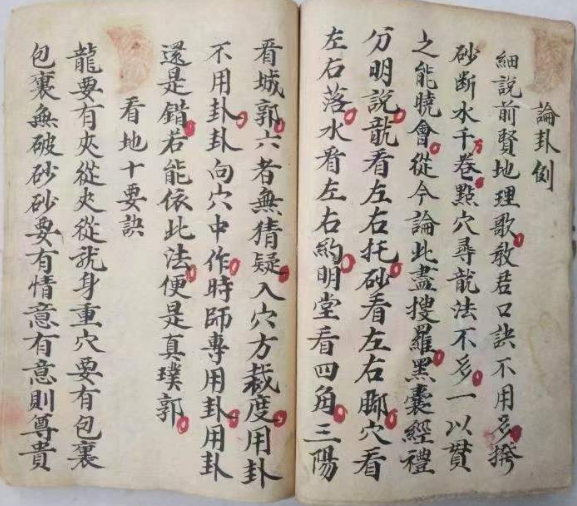 論卦例
細說前賢地理歌敢君口訣不用多撥
砂断水千卷點穴尋龍法不多一以貫
之能曉會從今論此盡搜羅黑囊經禮
分明說龍看左右托砂看左右脚穴看
左右落水看左右約明堂看四角三陽
看城郭六者無猜疑入穴方裁度用卦
不用卦卦向穴中作時師專用卦用卦
還是錯若能依此法便是真璞郭
看地十要訣
龍要有夾從夾從龍身重穴要有包裏
包裏無破砂砂要有情意有意則尊貴